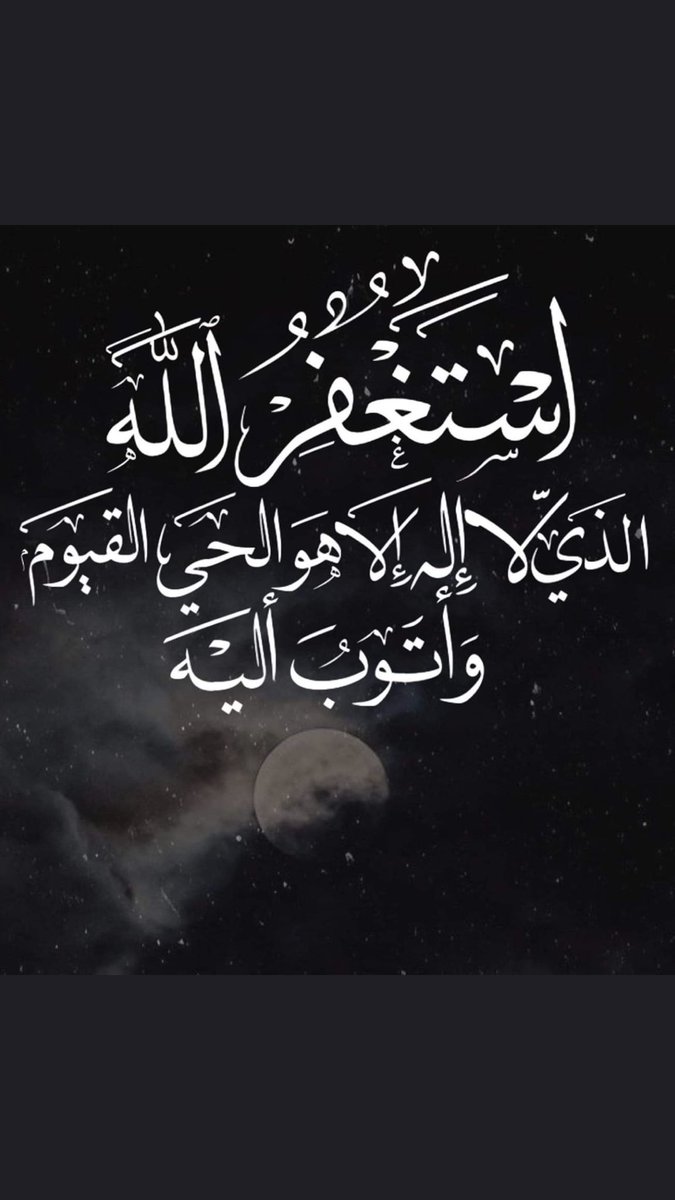 اسْتَغْفِرُ اللَّهَ
الذَي لّا إِله إِلا هَو الحَي القيومَ
وَأتَوبُ أليَه